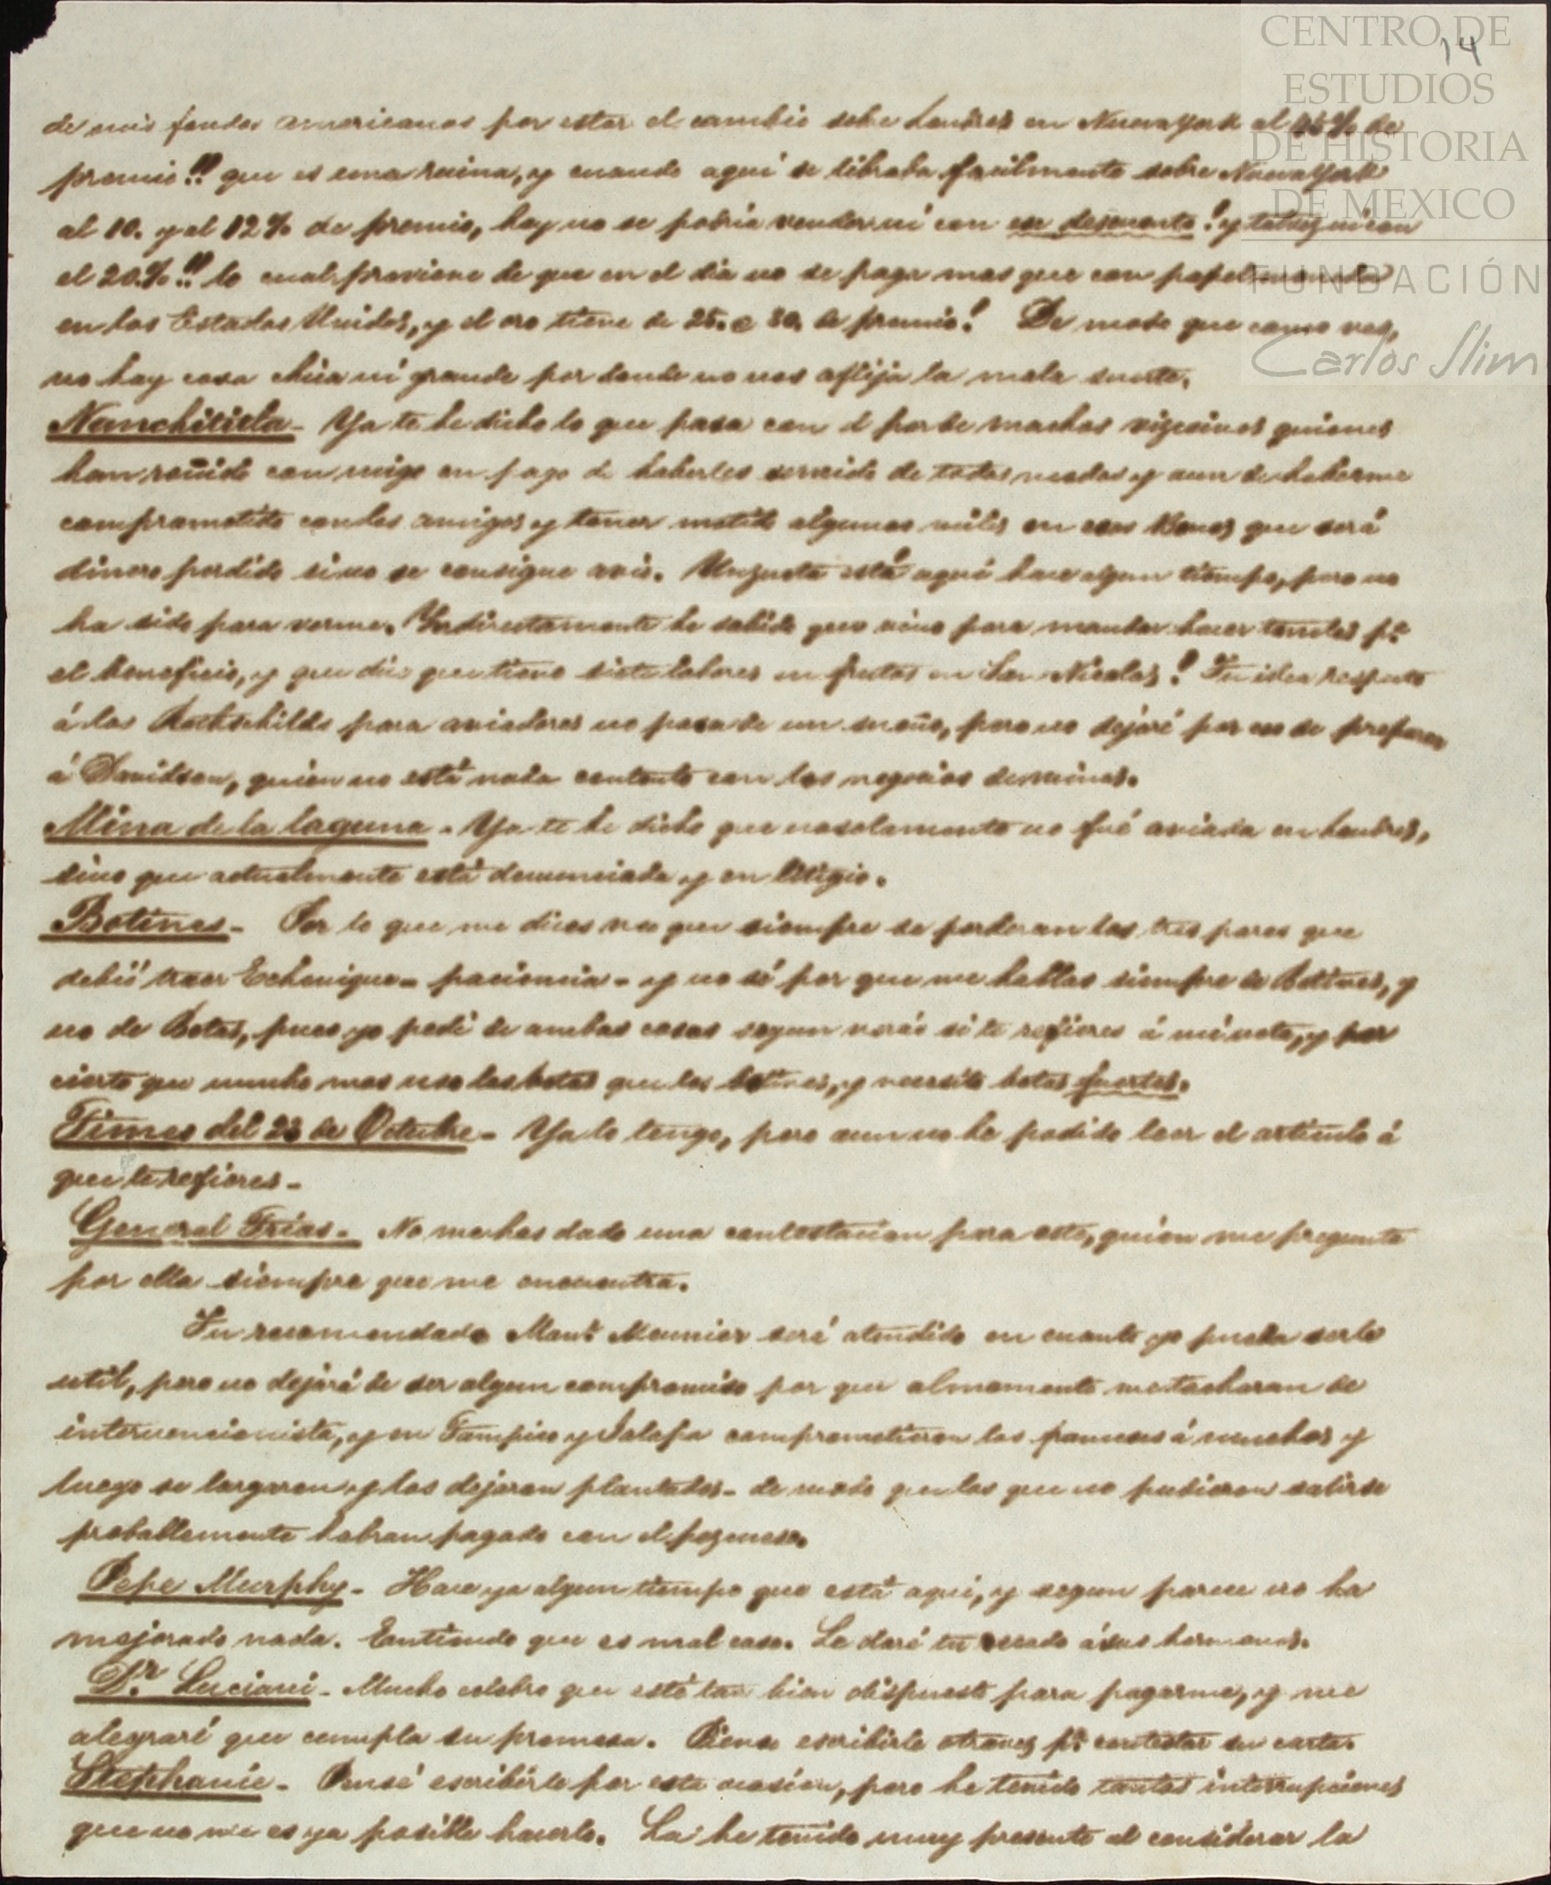 14
CENTRO DE
ESTUDIOS
DE HISTORIA
DE MEXICO
FUNDACIÓN
Carlos Slim
de mis fondos americanos por estar el cambio sobre Londres en Nueva York al 46% de
premio!! que es una ruina, y cuando aquí se libraba facilmente sobre Nueva York
al 10. y al 12% de premio, hoy no se podria vender ni con un descuento! y talvez ni con
el 20.%!! lo cual proviene de que en el dia no se paga mas que con papel moneda
en los Estados Unidos, y el oro tiene de 25. a 30. de premio! De modo que como ves,
no hay cosa chica ni grande por donde no nos aflija la mala suerte.
Nanchititla - Ya te he dicho lo que pasa con el par de machos viscainos quienes
han reñido conmigo en pago de haberles servido de todos modos y aun de haberme
comprometido con los amigos y tener metido algunos miles en esas Minas que será
dinero perdido si no se consigue avio. Unzueta está aquí hace algun tiempo, pero no
ha sido para verme. Yndirectamente he sabido que vino para mandar hacer toneles pa.
el beneficio, y que dice que tiene siete labores en frutos en San Nicolas! Tu idea respecto
á los Rothschilds para aviadores no pasa de un sueño, pero no dejaré por eso de preparar
á Davidson, quien no está nada contento con los negocios de minas.
Mina de la laguna - Ya te he dicho que no solamente no fué aviada en Londres,
sino que actualmente está denunciada y en litigio.
Botines - Por lo que me dices veo que siempre se perderan los tres pares que
debió traer Echenique - paciencia - y no sé por que me hablas siempre de Botines, y
no de Botas, pues yo pedí de ambas cosas segun verás si te refieres á mi nota, y por
cierto que mucho mas uso las botas que los botines, y necesito botas fuertes.
Times del 23 de Octubre - Ya lo tengo, pero aun no he podido leer el articulo á
que te refieres -
General Frias - No me has dado una contestacion para este, quien me pregunta
por ella siempre que me encuentra.
Tu recomendado Maur. Meunier será atendido en cuanto yo pueda serle
util, pero no dejará de ser algun compromiso por que al momento me tacharan de
intervencionista, y en Tampico y Jalapa comprometieron los franceses á muchos y
luego se largaron y los dejaron plantados - de modo que los que no pudieron salirse
probablemente habran pagado con el pezcueso.
Pepe Murphy - Hace ya algun tiempo que está aquí, y segun parece no ha
mejorado nada. Entiendo que es mal caso. Le daré tu recado á sus hermanos.
Dr. Luciani - Mucho celebro que esté tan bien dispuesto para pagarme, y me
alegraré que cumpla su promesa. Pienso escribirle otra vez pa. contestar su carta.
Stephanie - Pensé escribirle por esta ocasion, pero he tenido tantas interrupciones
que no me es ya posible hacerlo. La he tenido muy presente al considerar la